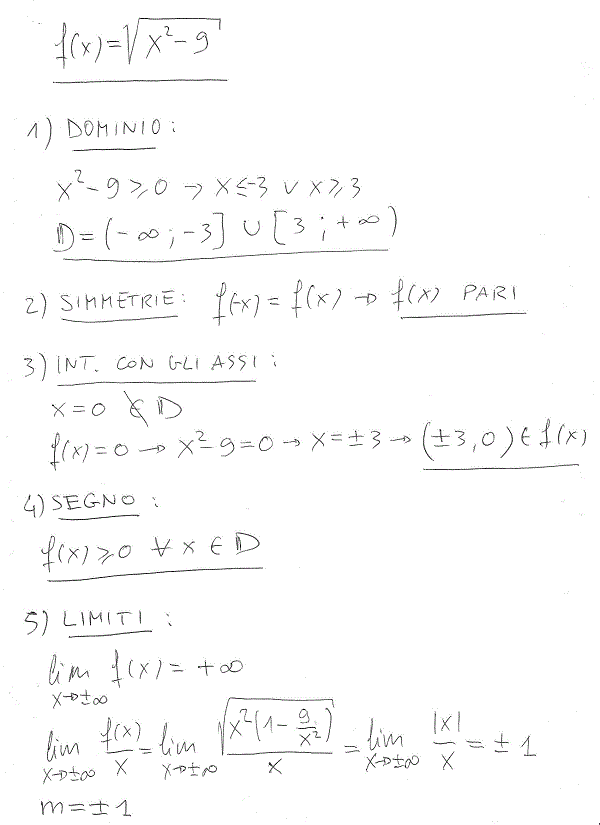 f(x)=√(x²-9)
1) DOMINIO:
x²-9⩾0 → x≤-3 ∨ x⩾3
D=(-∞;-3] ∪ [3;+∞)
2) SIMMETRIE: f(-x)=f(x) → f(x) PARI
3) INT. CON GLI ASSI:
x=0 ∉ D
f(x)=0 → x²-9=0 → x=±3 → (±3,0) ∈ f(x)
4) SEGNO:
f(x)⩾0 ∀ x ∈ D
5) LIMITI:
lim x→±∞ f(x)=+∞
lim x→±∞ f(x)/x = lim x→±∞ √(x²(1-9/x²))/x = lim x→±∞ |x|/x = ±1
m=±1